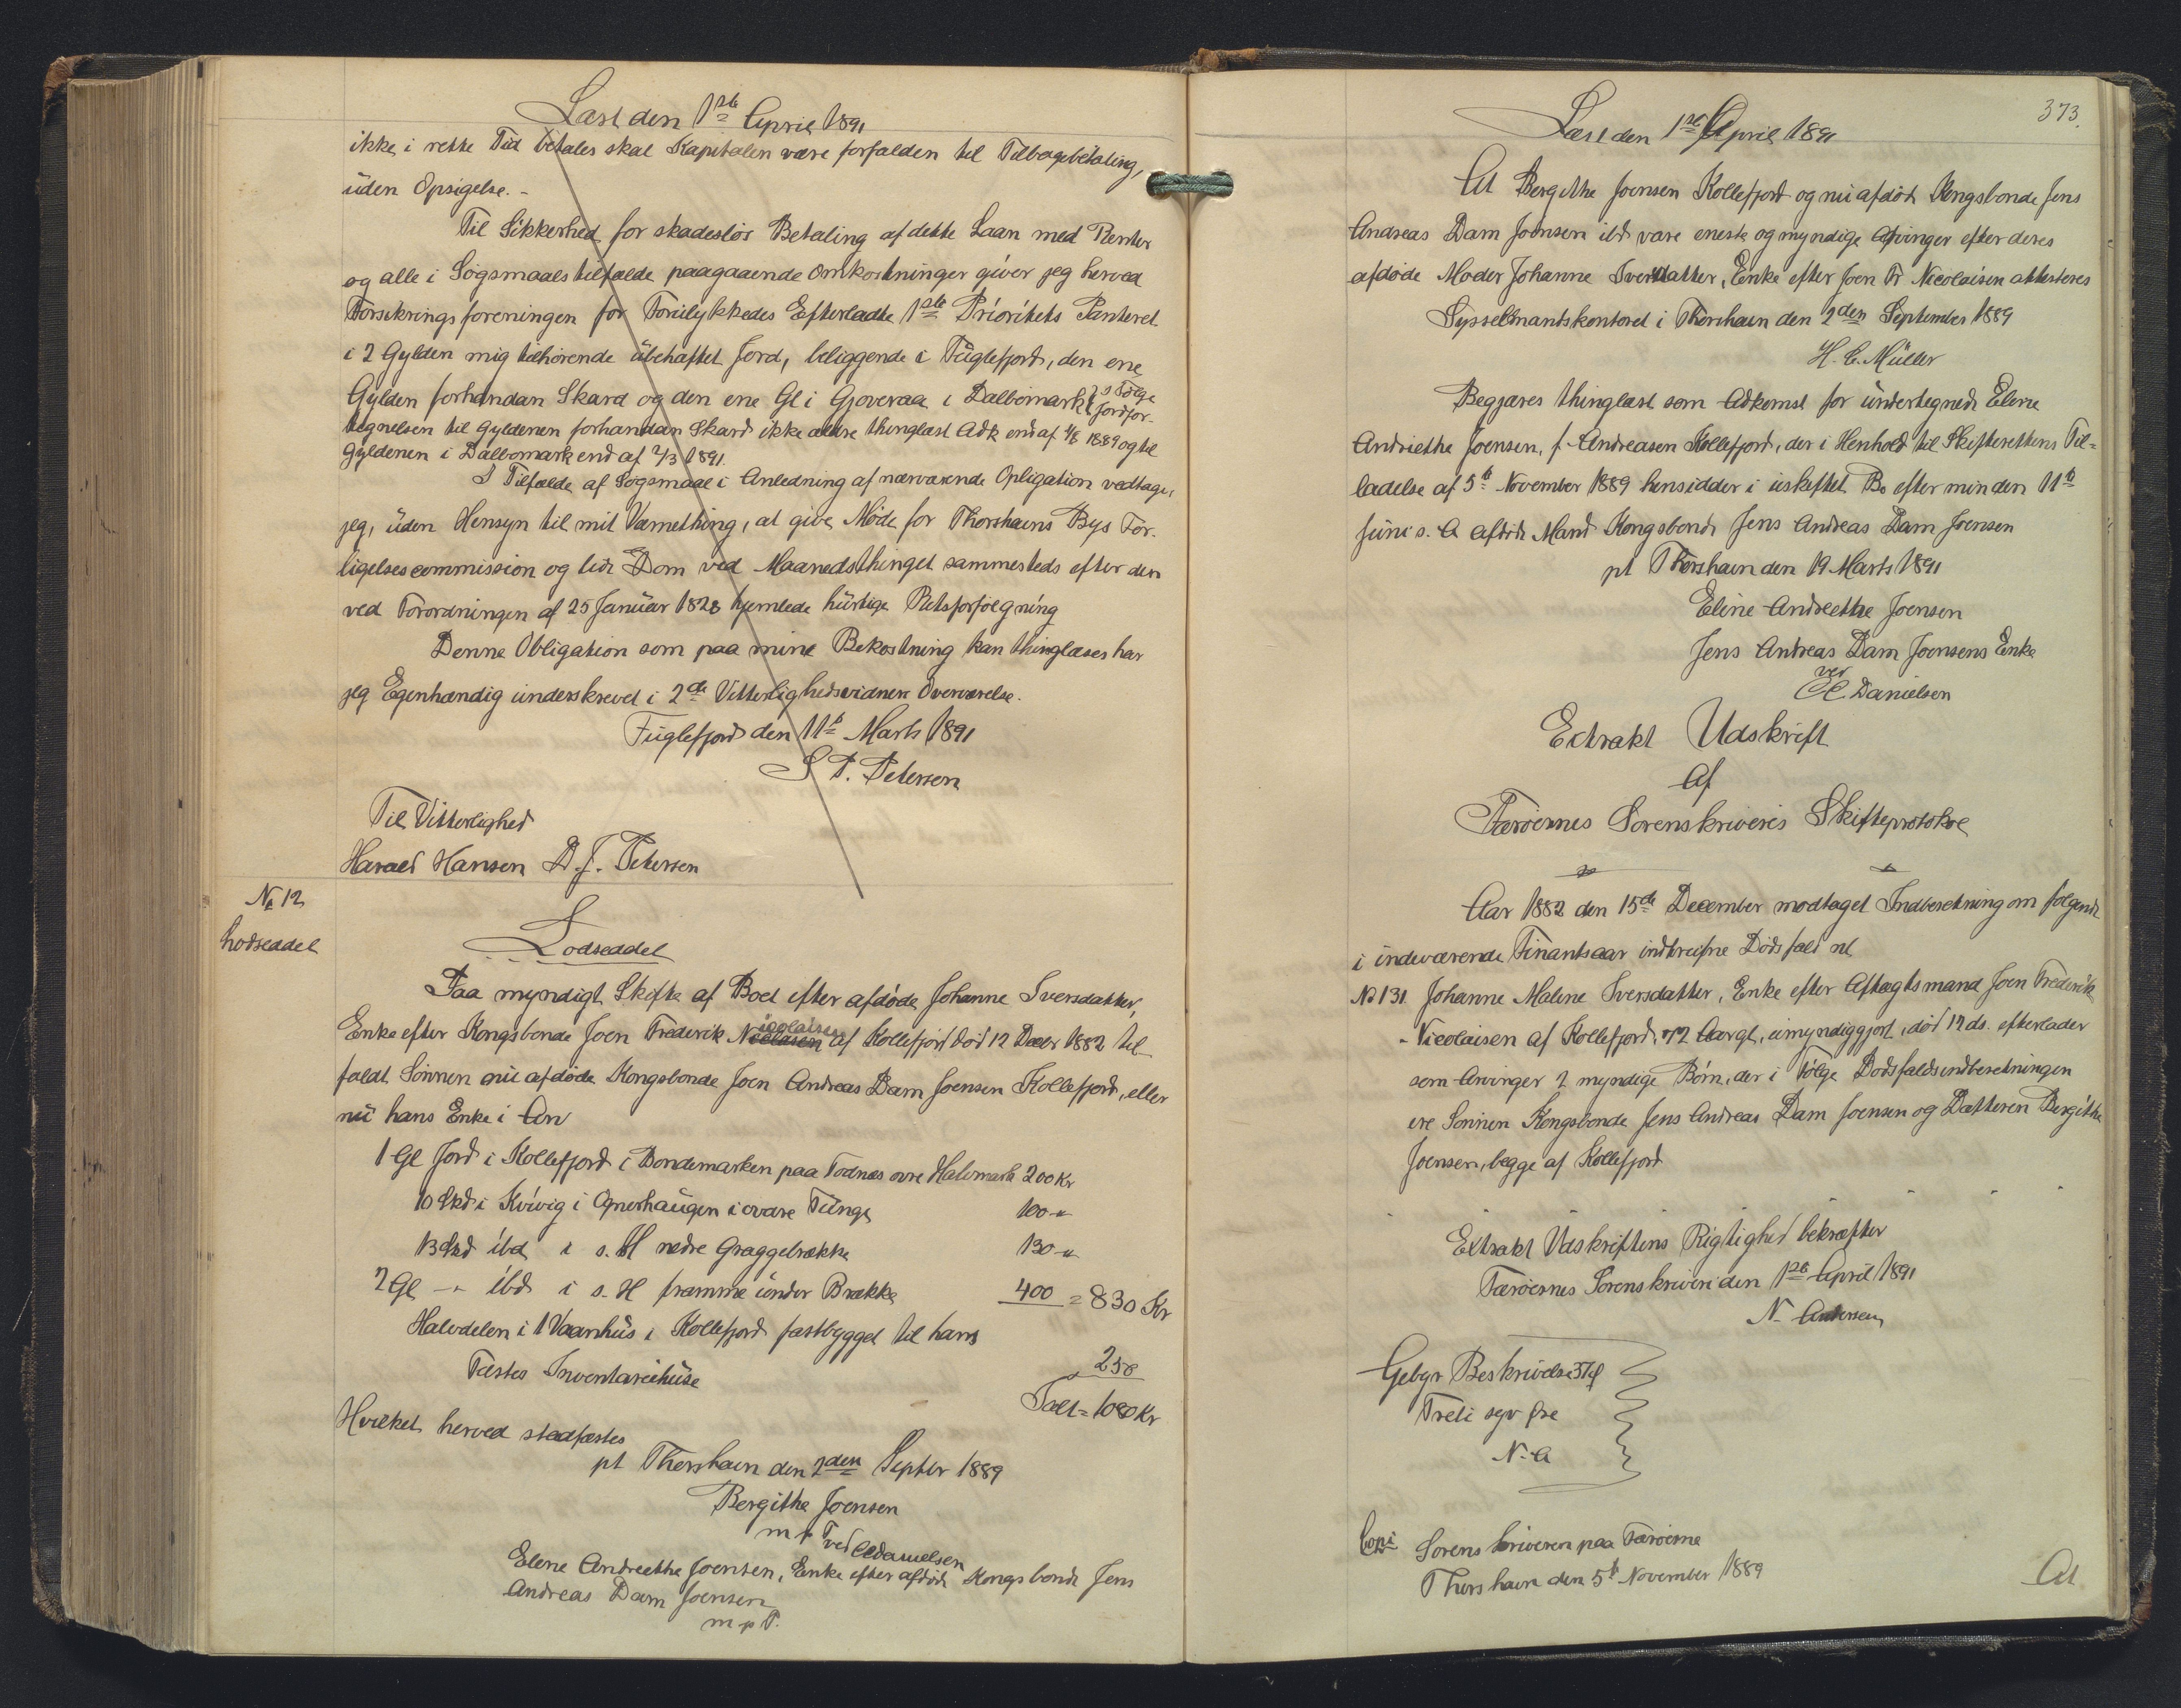 Læst den 1ste April 1891
ikke i rette Tid betales skal Kapitalen være forfalden til Tilbagebetaling,
uden Opsigelse.-
Til Sikkerhed for skadesløs Betaling af dette Laan med Renter
og alle i Søgsmaalstilfælde paagaaende Omkostninger giver jeg herved
Forsikringsforeningen for Forulykkedes Efterladte 1ste Prioritets Panteret
i 2 Gylden mig tilhørende ubehæftet Jord, beliggende i Fuglefjord, den ene
Gylden forhandan Skard og den ene Gl i Gjoveraa i Dalbømark, i Følge Jordfor-
tegnelsen til Gyldenen forhandan Skard ikke ældre thinglæst Adk end af 1/8 1889 og til
Gyldenen i Dalbomark end af 2/3 1891.
I Tilfælde af Søgsmaal i Anledning af nærværende Opligation vedtager
jeg, uden Hensyn til mit Værnething, at give Møde for Thorshavns Bys For-
ligelsescommission og lide Dom ved Maanedsthinget sammesteds efter den
ved Forordningen af 25 Januar 1828 hjemlede hurtige Retsforfølgning
Denne Obligation som paa mine Bekostning kan thinglæses har
jeg Egenhændig underskrevet i 2de Vitterlighedsvidners Overværelse.
Fuglefjord den 11te Marts 1891
S P. Petersen
Til Vitterlighed
Harald Hansen D. J. Petersen
No 12
Lodseddel
Lodseddel
Paa myndigt Skifte af Boet efter afdøde Johanne Iversdatter,
Enke efter Kongsbonde Joen Frederik Nicolaisen af Kollefjord død 12 Decbr 1882 til-
faldt Sønnen nu afdøde Kongsbonde Joen Andreas Dam Joensen Kollefjord, eller
nu hans Enke i Arv
1 Gl Jord i Kollefjord i Bondemarken paa Todnæs øvre Halvmark 200 Kr
10 Skd i Kvivig i Gnerhaugen i øvare Tunge 100 -"
13 Skd ibd i s. H nedre Graggebrække 130 -"
2 Gl -"- ibd i s. H framme under Brække 400 = 830 Kr
Halvdelen i 1 Vaanhus i Kollefjord fastbygget til hans
Fæstes Inventariehuse 250
Ialt = 1080 Kr
Hvilket herved stadfæstes
pt Thorshavn den 2den Septbr 1889
Bergithe Joensen
m p P ved C Danielsen
Elene Andreethe Joensen, Enke efter afdøde Kongsbonde Jens
Andreas Dam Joensen
m p P.
373.
Læst den 1ste April 1891
At Bergithe Joensen Kollefjord og nu afdøde Kongsbonde Jens
Andreas Dam Joensen ibd vare eneste og myndige Arvinger efter deres
afdøde Moder Johanne Iversdatter, Enke efter Joen Fr Nicolaisen attesteres
Sysselmantskontoret i Thorshavn den 2den September 1889
H. C. Müller
Begjæres thinglæst som Adkomst for undertegnede Elene
Andriethe Joensen, f. Andreasen Kollefjord, der i Henhold til Skifterettens Til-
ladelse af 5te November 1889 hensidder i uskiftet Bo efter min den 11te
Juni s. A afdøde Mand Kongsbonde Jens Andreas Dam Joensen
pt Thorshavn den 19 Marts 1891
Eline Andreethe Joensen
Jens Andreas Dam Joensens Enke
ved
C. Danielsen
Extrakt Udskrift
Af
Færøernes Sorenskriveris Skifteprotokol
Aar 1882 den 15de December modtaget Indberetning om følgende
i indeværende Finantsaar indtrufne Dødsfald nl
No 131. Johanne Malene Iversdatter, Enke efter Aftægtsmand Joen Frederik
Nicolaisen af Kollefjord, 72 Aargl, umyndiggjort, død 12 ds. efterlader
som Arvinger 2 myndige Børn, der i Følge Dødsfaldsindberetningen
ere Sønnen Kongsbonde Jens Andreas Dam Joensen og Datteren Bergithe
Joensen, begge af Kollefjord
Extrakt Udskriftens Rigtighed bekræfter
Færøernes Sorenskriveri den 1ste April 1891
N. Andersen
Gebyr Beskrivelse 37 Ø
Treti syv Øre
N. A
Copi Sorenskriveren paa Færøerne
Thorshavn den 5te November 1889
At